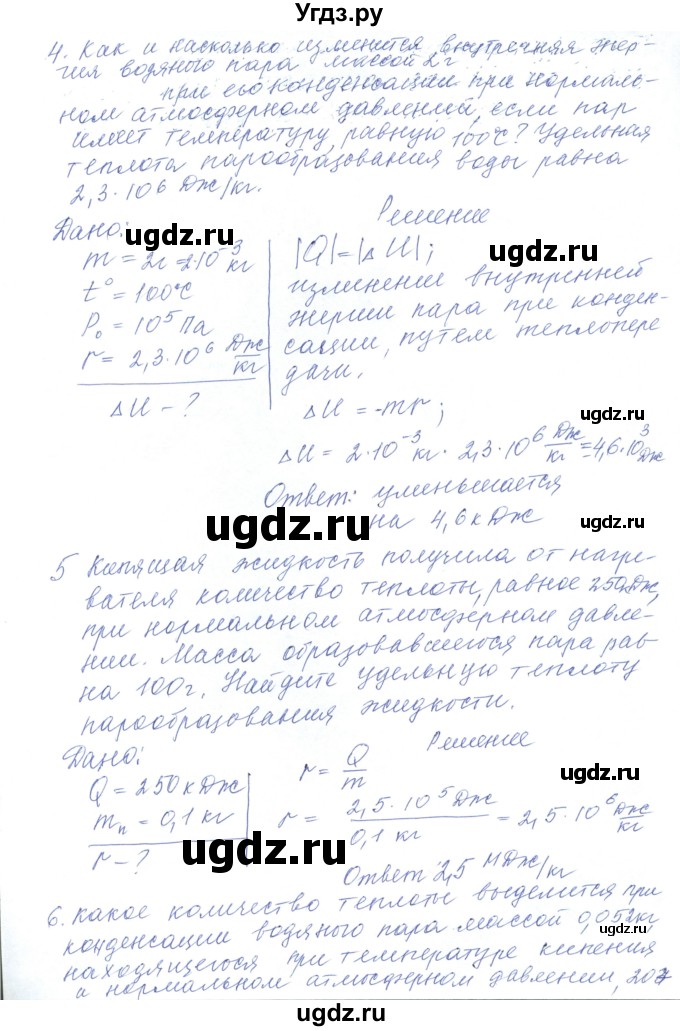 Угдз.ру
4. Как и насколько изменится внутренняя энер-
гия водяного пара массой 2г
при его конденсации при нормаль-
ном атмосферном давлении, если пар
имеет температуру, равную 100°С? Удельная
теплота парообразования воды равна
2,3·10⁶ Дж/кг.
Дано:
m = 2г = 2·10⁻³ кг
t° = 100°С
P₀ = 10⁵ Па
r = 2,3·10⁶ Дж/кг
ΔU - ?
Решение
|Q| = |ΔU|;
изменение внутренней
энергии пара при конден-
сации, путем теплопере
дачи.
ΔU = -mr;
ΔU = 2·10⁻³ кг · 2,3·10⁶ Дж/кг = 4,6·10³ Дж
Ответ: уменьшается
на 4,6 кДж
5 Кипящая жидкость получила от нагре-
вателя количество теплоты, равное 250Дж,
при нормальном атмосферном давле-
нии. Масса образовавшегося пара рав-
на 100г. Найдите удельную теплоту
парообразования жидкости.
Дано:
Q = 250 кДж
mп = 0,1 кг
r - ?
Решение
r = Q/m
r = 2,5·10⁵ Дж / 0,1 кг = 2,5·10⁶ Дж/кг
Ответ: 2,5 МДж/кг
6. Какое количество теплоты выделится при
конденсации водяного пара массой 0,052кг,
находящегося при температуре кипения
и нормальном атмосферном давлении,
ugdz.ru
ugdz.ru
ugdz.ru
ugdz.ru
ugdz.ru
ugdz.ru
ugdz.ru
ugdz.ru
ugdz.ru